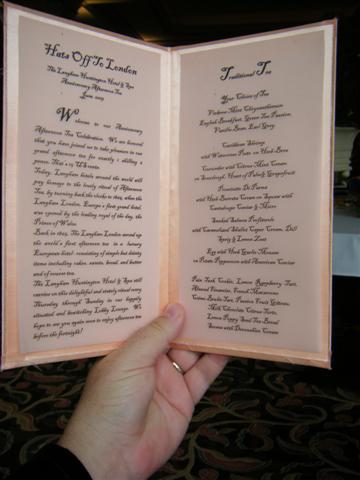 Hats Off To London
The Langham Huntington Hotel & Spa
Anniversary Afternoon Tea
June 2005
Welcome to our Anniversary
Afternoon Tea Celebration. We are honored
that you have joined us to take pleasure in our
grand afternoon tea for exactly 1 shilling a
person. That's 15 US cents.
Today, Langham hotels around the world will
pay homage to the lovely ritual of Afternoon
Tea, by turning back the clocks to 1865, when the
Langham London, Europe's first grand hotel,
was opened by the leading royal of the day, the
Prince of Wales.
Back in 1865, The Langham London served up
the world's first afternoon tea in a luxury
European hotel consisting of simple but dainty
items including cakes, scones, bread, and butter
and of course tea.
The Langham Huntington Hotel & Spa still
carries on this delightful and stately ritual every
Thursday through Sunday in our happily
situated and bewitching Lobby Lounge. We
hope to see you again soon to enjoy afternoon tea
before the fortnight!
Traditional Tea
Your Choice of Tea
Chrysanthemum
English Breakfast, Green Tea Passion
Vanilla Bean, Earl Grey
Caribbean Shrimp
with Watercress Pesto on Herb Brie
Cucumber with Citrus Mint Cream
on Sourdough, Heart of Palm & Grapefruit
Prosciutto Di Parma
with Herb Boursin Cream on Square with
Cantaloupe Caviar & Micro
Smoked Salmon Profiterole
with Caramelized Shallot Caper Cream, Dill
Sprig & Lemon Zest
Egg with Herb Garlic Mousse
on Potato Pepperoni with American Caviar
Palm Leaf Cookie, Lemon Raspberry Tart,
Almond Financier, French Macaroons
Crème Brulée Tart, Passion Fruit Gâteau,
Milk Chocolate Citrus Torte,
Lemon Poppy Seed Tea Bread
Scones with Devonshire Cream